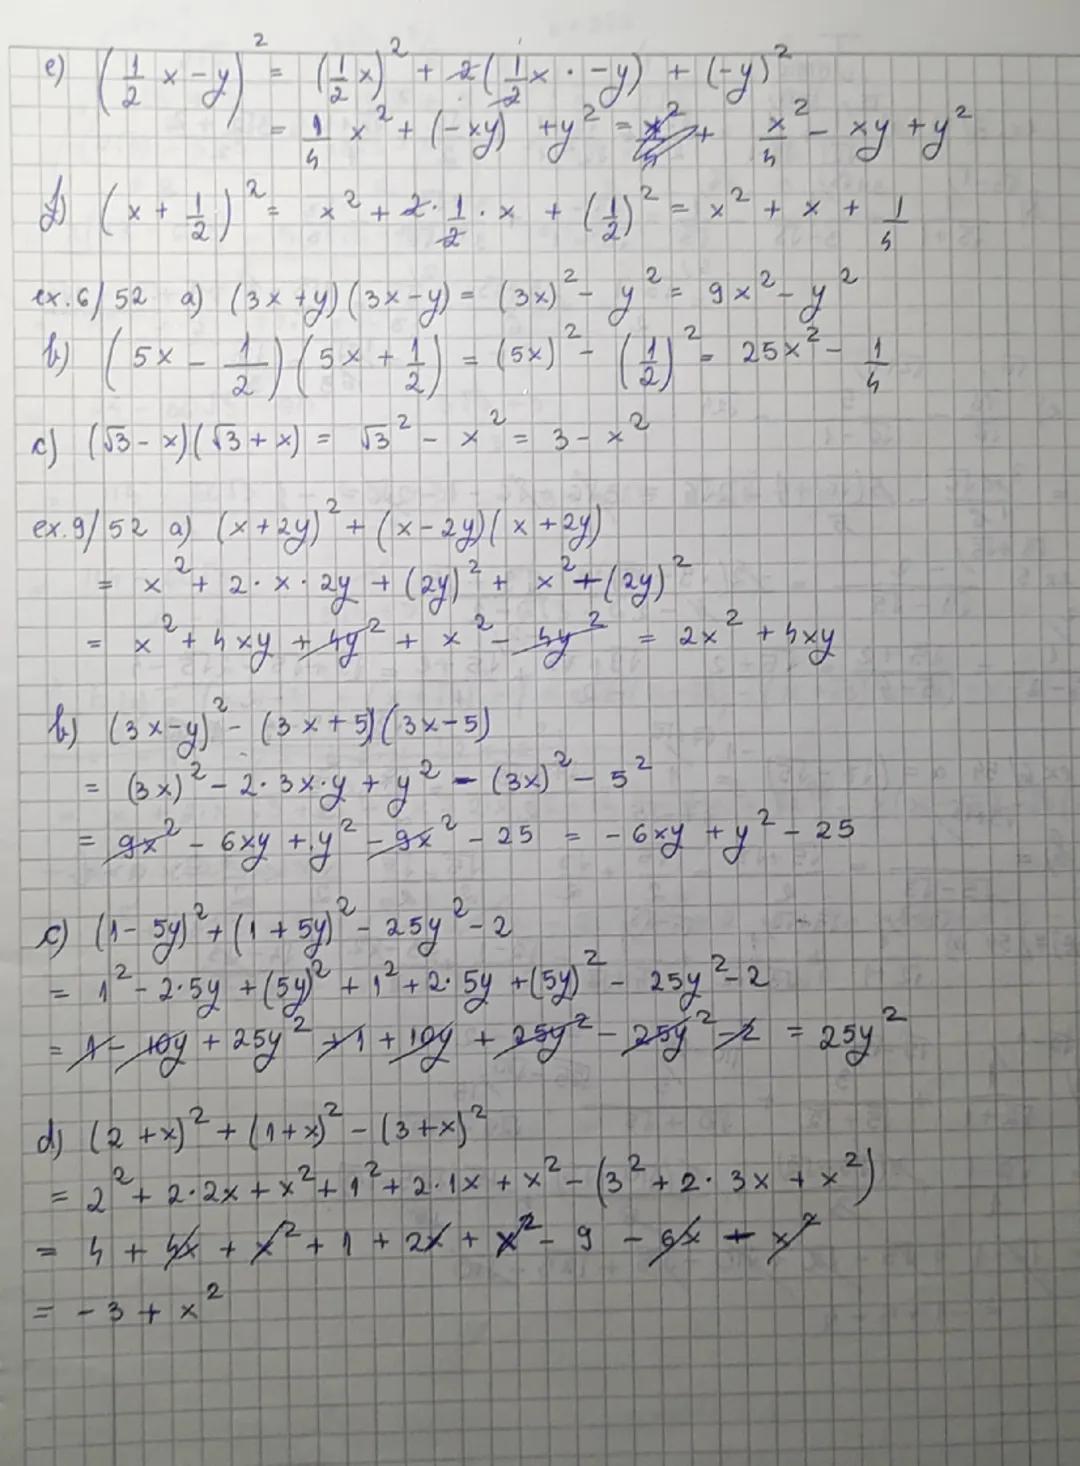 e) (1/2 x - y)² = (1/2 x)² + 2(1/2 x · -y) + (-y)²
= 1/4 x² + (-xy) + y² = x²/4 + x²/4 - xy + y²
f) (x + 1/2)² = x² + 2 · 1/2 · x + (1/2)² = x² + x + 1/4
ex. 6/52 a) (3x + y)(3x - y) = (3x)² - y² = 9x² - y²
b) (5x - 1/2)(5x + 1/2) = (5x)² - (1/2)² = 25x² - 1/4
c) (√3 - x)(√3 + x) = √3² - x² = 3 - x²
ex. 9/52 a) (x + 2y)² + (x - 2y)(x + 2y)
= x² + 2 · x · 2y + (2y)² + x² - (2y)²
= x² + 4xy + 4y² + x² - 4y² = 2x² + 4xy
b) (3x - y)² - (3x + 5)(3x - 5)
= (3x)² - 2 · 3x · y + y² - (3x)² - 5²
= 9x² - 6xy + y² - 9x² - 25 = -6xy + y² - 25
c) (1 - 5y)² + (1 + 5y)² - 25y² - 2
= 1² - 2 · 5y + (5y)² + 1² + 2 · 5y + (5y)² - 25y² - 2
= 1 - 10y + 25y² + 1 + 10y + 25y² - 25y² - 2 = 25y²
d) (2 + x)² + (1 + x)² - (3 + x)²
= 2² + 2 · 2x + x² + 1² + 2 · 1x + x² - (3² + 2 · 3x + x²)
= 4 + 4x + x² + 1 + 2x + x² - 9 - 6x - x²
= -3 + x²